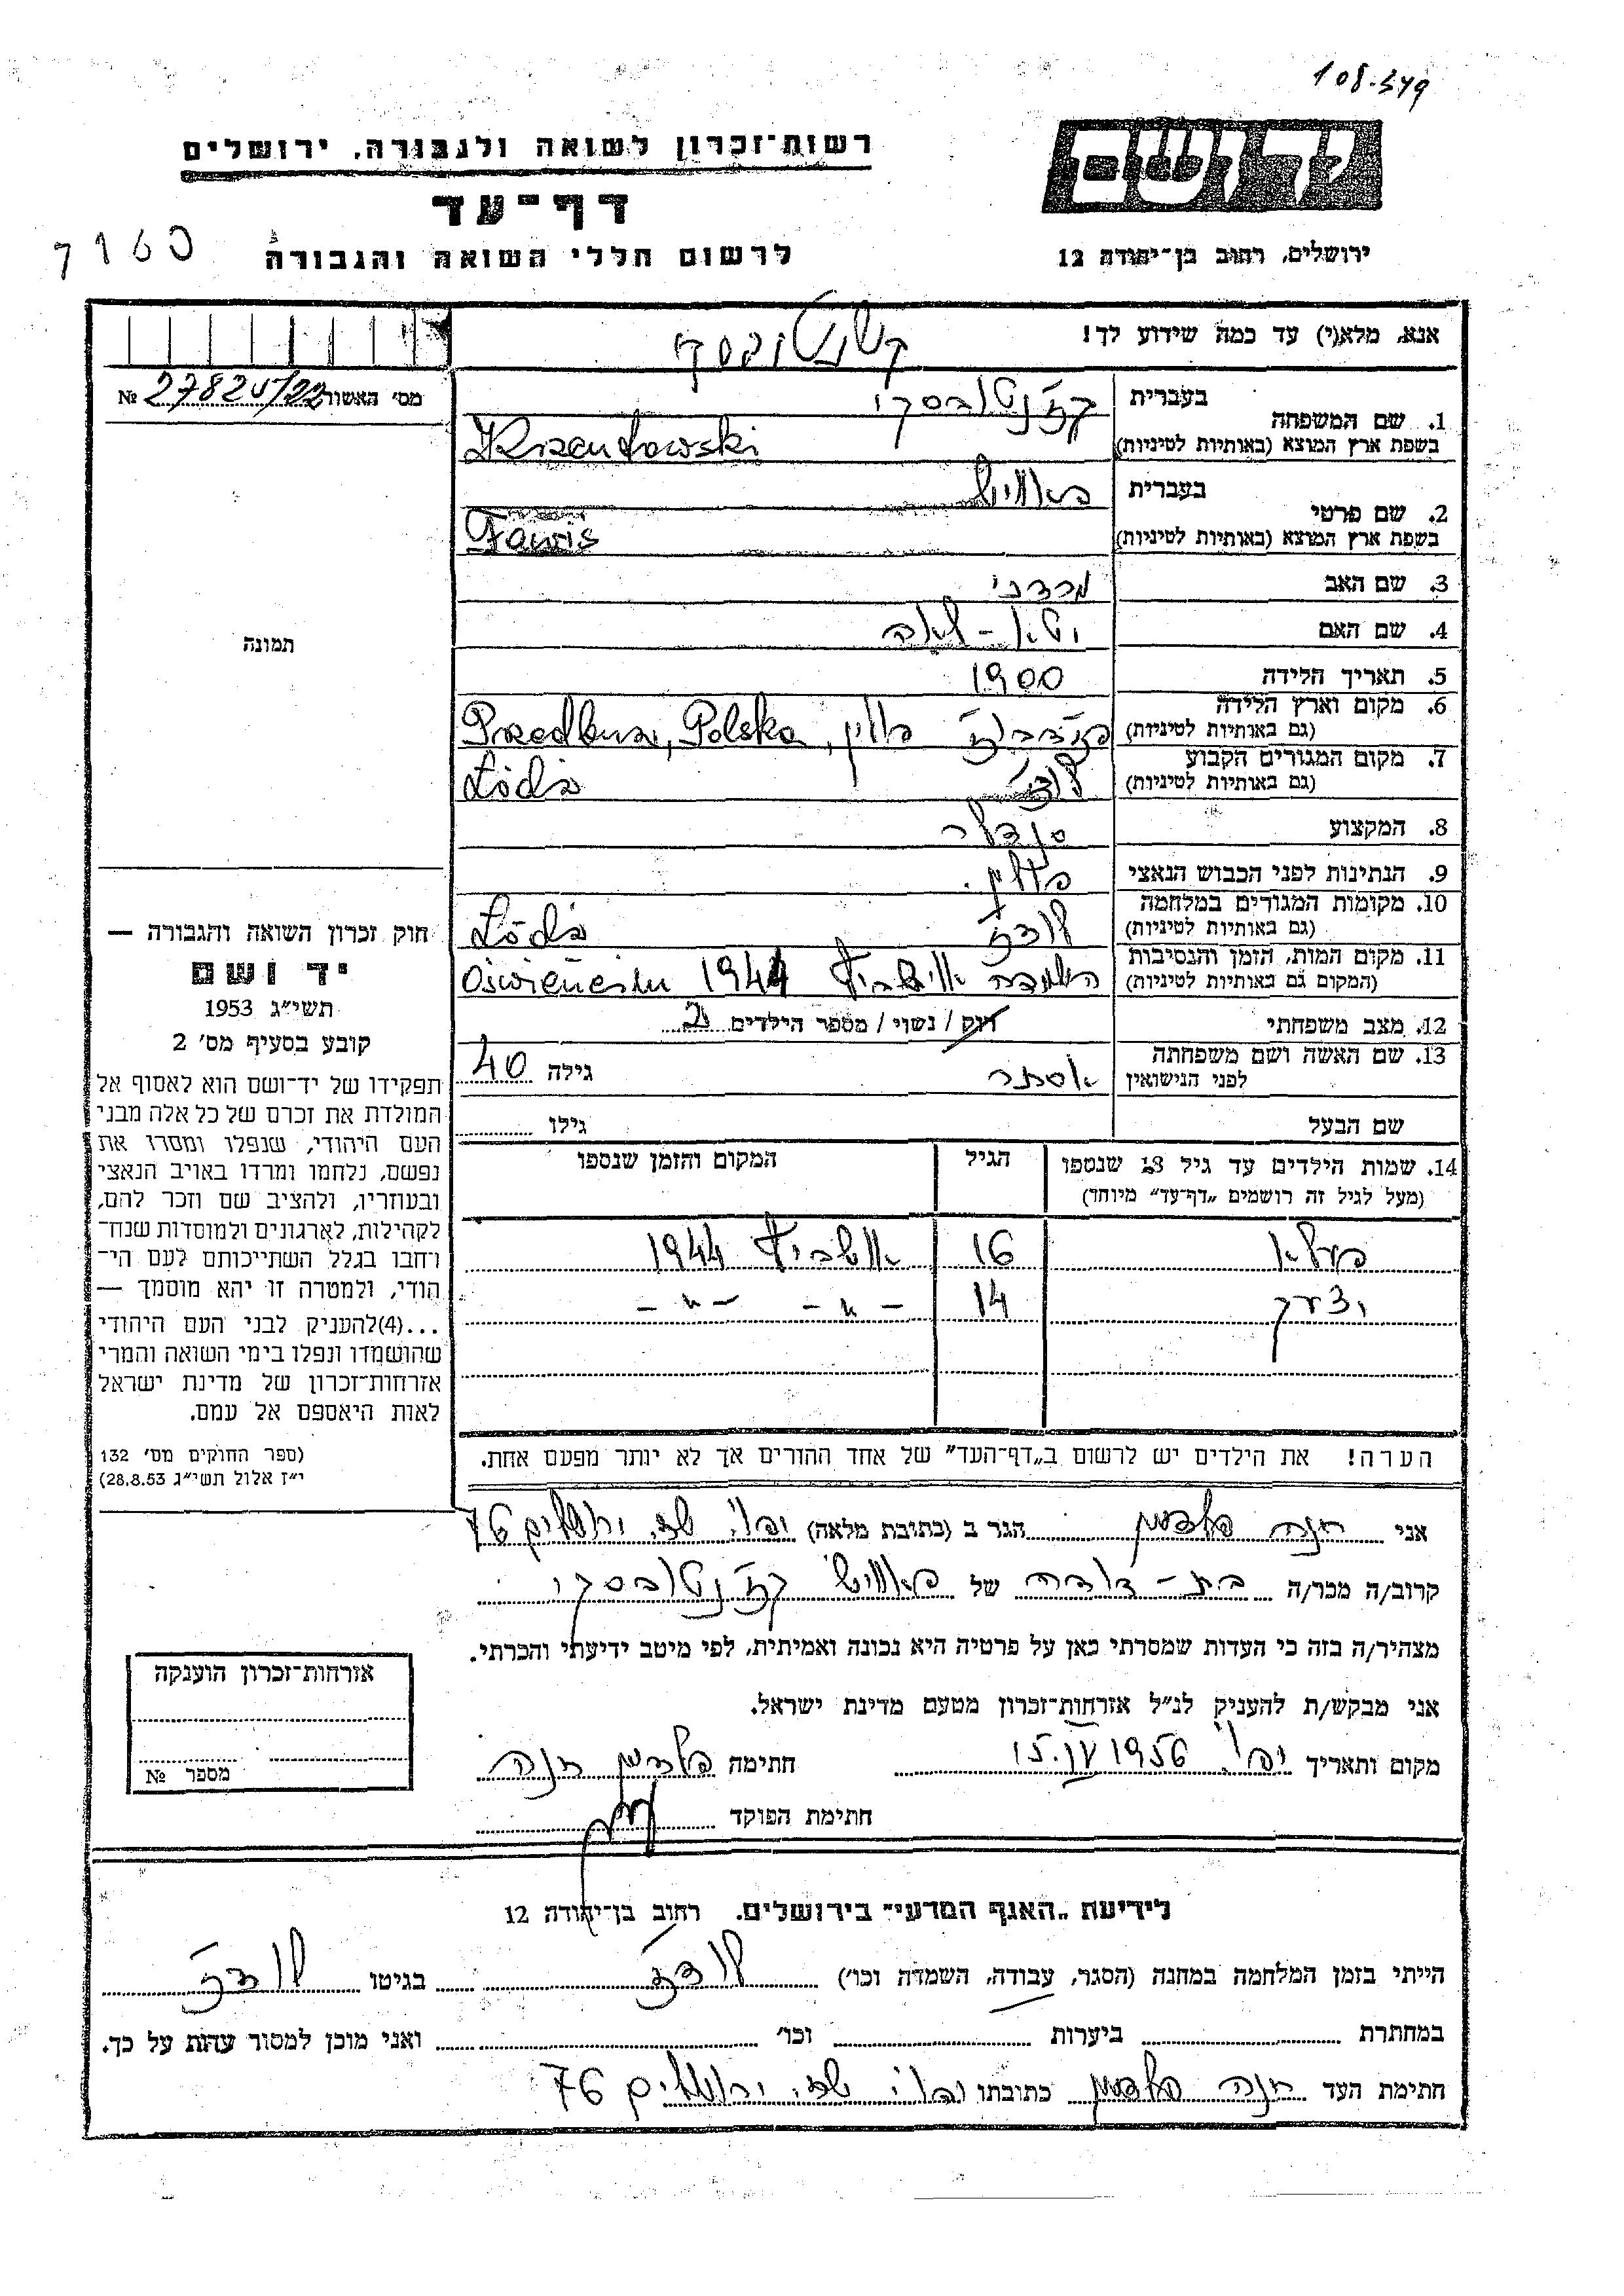 108.379
ידושם
רשות־זכרון לשואה ולגבורה, ירושלים
דף־עד
לרשום חללי השואה והגבורה
ירושלים, רחוב בן־יהודה 12
אנא, מלא(י) עד כמה שידוע לך!
מס׳ האשור № 27820/22
1. שם המשפחה בעברית קז'נטובסקי
בשפת ארץ המוצא (באותיות לטיניות) Krzentowski
2. שם פרטי בעברית
בשפת ארץ המוצא (באותיות לטיניות)
3. שם האב מרדכי
4. שם האם
5. תאריך הלידה 1900
6. מקום וארץ הלידה
(גם באותיות לטיניות) פולין, Polska
7. מקום המגורים הקבוע
(גם באותיות לטיניות) לודז' Łódź
8. המקצוע סנדלר
9. הנתינות לפני הכבוש הנאצי פולין.
10. מקומות המגורים במלחמה
(גם באותיות לטיניות) לודז' Łódź
11. מקום המות, הזמן והנסיבות
(המקום גם באותיות לטיניות) 1944
12. מצב משפחתי רווק / נשוי / מספר הילדים 2
13. שם האשה ושם משפחתה
לפני הנישואין אסתר גילה 40
שם הבעל גילו
תמונה
חוק זכרון השואה והגבורה —
יד ושם
תשי״ג 1953
קובע בסעיף מס׳ 2
תפקידו של יד־ושם הוא לאסוף אל
המולדת את זכרם של כל אלה מבני
העם היהודי, שנפלו ומסרו את
נפשם, נלחמו ומרדו באויב הנאצי
ובעוזריו, ולהציב שם וזכר להם,
לקהילות, לארגונים ולמוסדות שנח־
רחבו בגלל השתייכותם לעם הי־
הודי, ולמטרה זו יהא מוסמך —
...(4)להעניק לבני העם היהודי
שהושמדו ונפלו בימי השואה והמרי
אזרחות־זכרון של מדינת ישראל
לאות היאספם אל עמם.
(ספר החוקים מס׳ 132
י״ז אלול תשי״ג 28.8.53)
14. שמות הילדים עד גיל 18 שנספו הגיל המקום והזמן שנספו
(מעל לגיל זה רושמים „דף־עד״ מיוחד)
16 1944
יצחק 14 — " — — " —
הערה! את הילדים יש לרשום ב„דף־העד״ של אחד ההורים אך לא יותר מפעם אחת.
אני חנה הגר ב (כתובת מלאה) יפו, שד. ירושלים 76
קרוב/ה מכר/ה בת - דודה של קז'נטובסקי
מצהיר/ה בזה כי העדות שמסרתי כאן על פרטיה היא נכונה ואמיתית, לפי מיטב ידיעתי והכרתי.
אני מבקש/ת להעניק לנ״ל אזרחות־זכרון מטעם מדינת ישראל.
מקום ותאריך יפו 15.IV 1956 חתימה חנה
חתימת הפוקד
אזרחות־זכרון הוענקה
מספר №
לידיעת „האגף המדעי״ בירושלים. רחוב בן־יהודה 12
הייתי בזמן המלחמה במחנה (הסגר, עבודה, השמדה וכו׳) לודז' בגיטו לודז'
במחתרת ביערות וכו׳ ואני מוכן למסור עדות על כך.
חתימת העד חנה כתובתו יפו שד. ירושלים 76